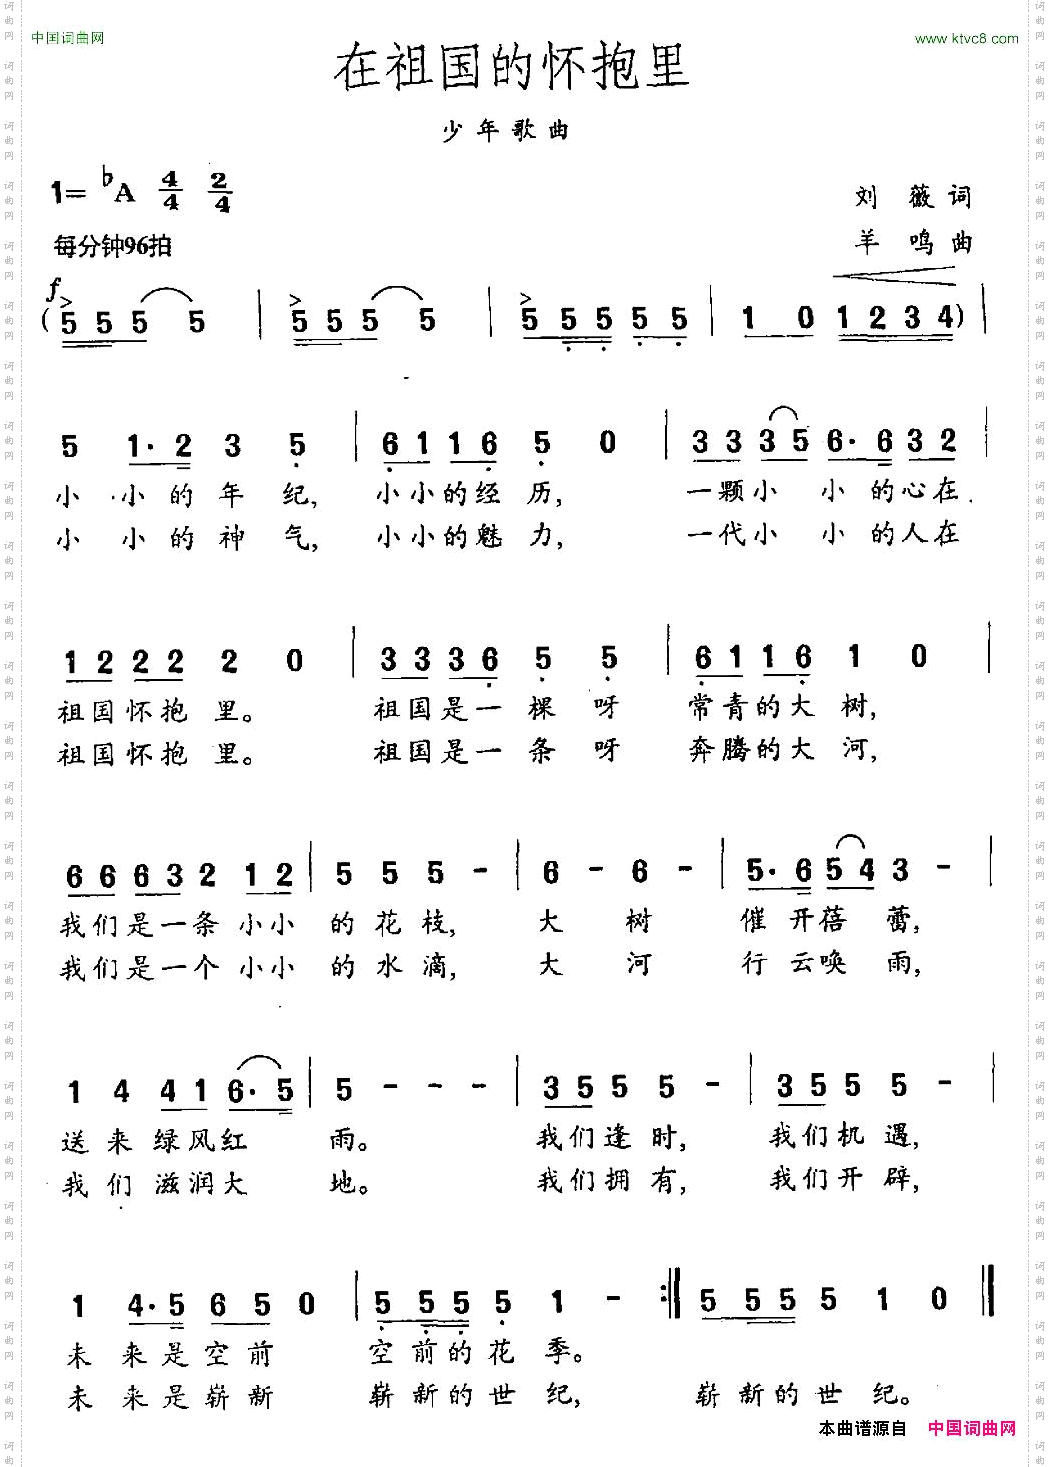 中国词曲网 www.ktvc8.com
在祖国的怀抱里
少年歌曲
1=♭A 4/4 2/4
刘薇词
每分钟96拍
羊鸣曲
f
(5 5 5 5 | 5 5 5 5 | 5 5 5 5 5 | 1 0 1 2 3 4) |
5 1·2 3 5 | 6 1 1 6 5 0 | 3 3 3 5 6·6 3 2 |
小小的年纪, 小小的经历, 一颗小小的心在
小小的神气, 小小的魅力, 一代小小的人在
1 2 2 2 2 0 | 3 3 3 6 5 5 | 6 1 1 6 1 0 |
祖国怀抱里。 祖国是一棵呀 常青的大树,
祖国怀抱里。 祖国是一条呀 奔腾的大河,
6 6 6 3 2 1 2 | 5 5 5 - | 6 - 6 - | 5·6 5 4 3 - |
我们是一条小小的花枝, 大树 催开蓓蕾,
我们是一个小小的水滴, 大河 行云唤雨,
1 4 4 1 6·5 | 5 - - - | 3 5 5 5 - | 3 5 5 5 - |
送来绿风红雨。 我们逢时, 我们机遇,
我们滋润大地。 我们拥有, 我们开辟,
1 4·5 6 5 0 | 5 5 5 5 1 - :‖ 5 5 5 5 1 0 ‖
未来是空前 空前的花季。
未来是崭新 崭新的世纪, 崭新的世纪。
本曲谱源自 中国词曲网